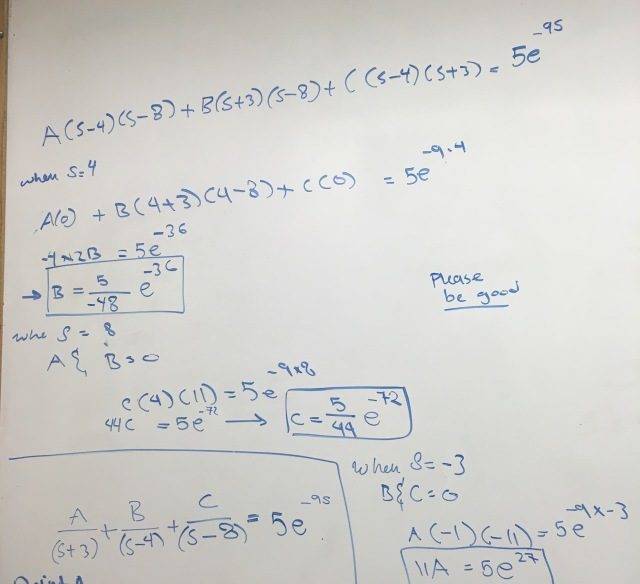 A(s-4)(s-8) + B(s+3)(s-8) + C(s-4)(s+3) = 5e^-9s
when s=4
A(0) + B(4+3)(4-8) + C(0) = 5e^-9·4
= 5e^-36
→ B = 5/-48 e^-36
Please
be good
whe s = 8
A & B = 0
C(4)(11) = 5e^-9×8
44C = 5e^-72 → C = 5/44 e^-72
A/(s+3) + B/(s-4) + C/(s-8) = 5e^-9s
when s = -3
B & C = 0
A(-1)(-11) = 5e^-9×-3
11A = 5e^27